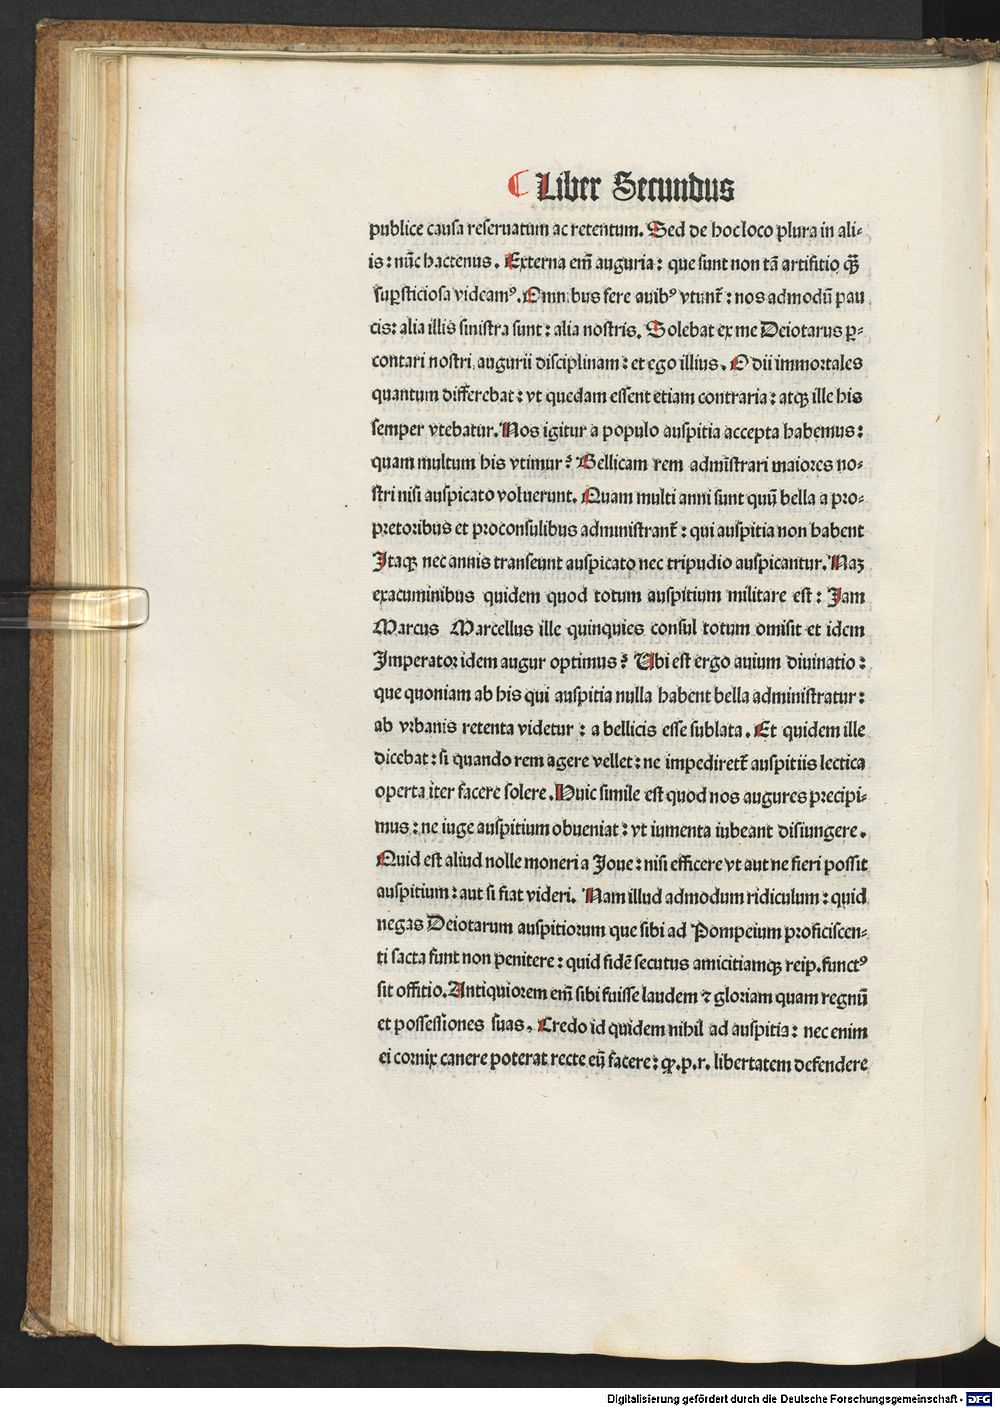 ⁌ Liber Secundus
publice causa reseruatum ac retentum. Sed de hoc loco plura in ali⸗
is: nūc hactenus. Externa em̄ auguria: que sunt non tā artifitio ꝙ̄
suꝑsticiosa videamꝰ. Omnibus fere auibꝰ vtunt᷑: nos admodū pau
cis: alia illis sinistra sunt: alia nostris. Solebat ex me Deiotarus ꝑ⸗
contari nostri augurii disciplinam: et ego illius. O dii immortales
quantum differebat: vt quedam essent etiam contraria: atqꝫ ille his
semper vtebatur. Nos igitur a populo auspitia accepta habemus:
quam multum his vtimur? Bellicam rem admīstrari maiores no⸗
stri nisi auspicato voluerunt. Quam multi anni sunt quū bella a pro⸗
pretoribus et proconsulibus administrant᷑: qui auspitia non habent
Itaqꝫ nec annis transeunt auspicato nec tripudio auspicantur. Naꝫ
exacuminibus quidem quod totum auspitium militare est: Iam
Marcus Marcellus ille quinquies consul totum omisit et idem
Imperator idem augur optimus? Ubi est ergo auium diuinatio:
que quoniam ab his qui auspitia nulla habent bella administratur:
ab vrbanis retenta videtur: a bellicis esse sublata. Et quidem ille
dicebat: si quando rem agere vellet: ne impediret᷑ auspitiis lectica
operta iter facere solere. Huic simile est quod nos augures precipi⸗
mus: ne iuge auspitium obueniat: vt iumenta iubeant disiungere.
Quid est aliud nolle moneri a Ioue: nisi efficere vt aut ne fieri possit
auspitium: aut si fiat videri. Nam illud admodum ridiculum: quid
negas Deiotarum auspitiorum que sibi ad Pompeium proficiscen⸗
ti facta sunt non penitere: quid fidē secutus amicitiamqꝫ reip. functꝰ
sit offitio. Antiquiorem em̄ sibi fuisse laudem ⁊ gloriam quam regnū
et possessiones suas. Credo id quidem nihil ad auspitia: nec enim
ei cornix canere poterat recte eū facere: ꝙ .p.r. libertatem defendere
Digitalisierung gefördert durch die Deutsche Forschungsgemeinschaft - DFG